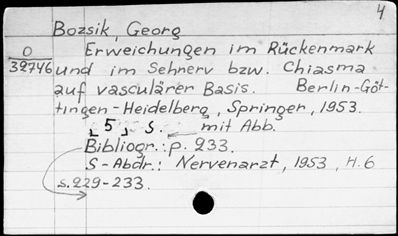 4
Bozsik, Georg
O
39746
Erweichungen im Rückenmark
und im Sehnerv bzw. Chiasma
auf vasculärer Basis. Berlin-Göt-
tingen-Heidelberg, Springer, 1953.
[5] S. mit Abb.
Bibliogr.: p. 233.
S-Abdr.: Nervenarzt, 1953, H.6
s.229-233.